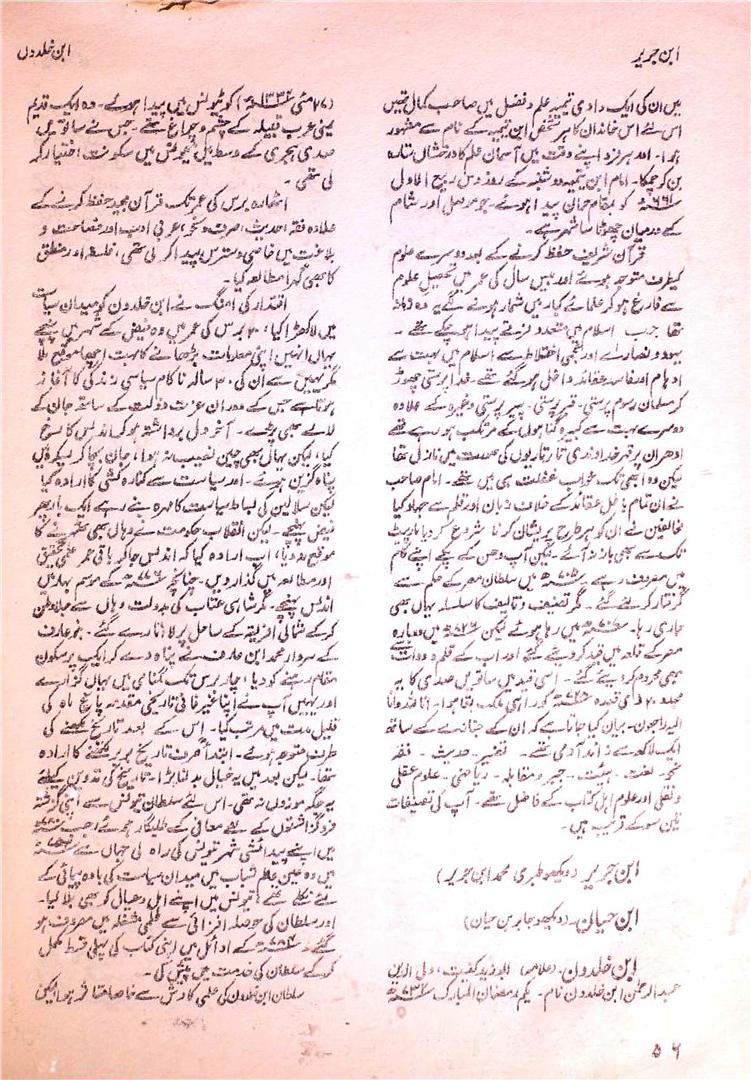 ابن جریر
ابن خلدون
ہیں ان کی ایک دادی تیمیہ علم و فضل میں صاحب کمال تھیں
اس لئے اس خاندان کا ہر شخص ابن تیمیہ کے نام سے مشہور
ہوا۔ اور ہر فرد اپنے وقت میں آسمان علم کا درخشاں ستارہ
بن کر چمکا۔ امام ابن تیمیہ دوشنبہ کے روز دس ربیع الاول
۶۶۱ھ کو مقام حران پیدا ہوئے۔ جو موصل اور شام
کے درمیان چھوٹا سا شہر ہے۔
قرآن شریف حفظ کرنے کے بعد دوسرے علوم
کیطرف متوجہ ہوئے اور بیس سال کی عمر میں تحصیل علوم
سے فارغ ہو کر علمائے کبار میں شمار ہونے لگے یہ وہ وقت
تھا جب اسلام میں متعدد فرقے پیدا ہو چکے تھے۔
یہود و نصاریٰ اور عجمی اختلاط سے اسلام میں بہت سے
اوہام اور فاسد عقائد داخل ہو گئے تھے۔ خدا پرستی چھوڑ
کر مسلمان رسوم پرستی۔ قبر پرستی۔ پیر پرستی وغیرہ کے علاوہ
دوسرے بہت سے کبیرہ گناہوں کے مرتکب ہو رہے تھے
ادھر ان پر قہر خداوندی تاتاریوں کی صورت میں نازل تھا
لیکن وہ ابھی تک خواب غفلت ہی میں تھے۔ امام صاحب
نے ان تمام باطل عقائد کے خلاف زبان اور قلم سے جہاد کیا
مخالفین نے ان کو ہر طرح پریشان کرنا شروع کر دیا مارپیٹ
تک سے بھی باز نہ آئے۔ لیکن آپ دھن کے پکے اپنے کام
میں مصروف رہے میں سلطان مصر کے حکم سے
گرفتار کر لئے گئے۔ مگر تصنیف و تالیف کا سلسلہ یہاں بھی
جاری رہا۔ میں رہا ہوئے لیکن میں دوبارہ
مصر کے قلعہ میں قید کر دیئے گئے اور اب کے قلم و دوات سے
بھی محروم کر دیئے گئے۔ اسی قید میں ساتویں صدی کا یہ
مجدد ۲۰ ذی قعدہ ۷۲۸ھ کو راہی ملک بقا ہوا۔ انا للہ وانا
الیہ راجعون۔ بیان کیا جاتا ہے کہ ان کے جنازے کے ساتھ
ایک لاکھ سے زائد آدمی تھے۔ تفسیر۔ حدیث۔ فقہ
نحو۔ لغت۔ ہیئت۔ جبر و مقابلہ۔ ریاضی۔ علوم عقلی
و نقلی اور علوم اہل کتاب کے فاضل تھے۔ آپ کی تصنیفات
تین سو کے قریب ہیں۔
ابن جریر (دیکھو طبری محمد ابن جریر)
ابن حیان۔ (دیکھو جابر بن حیان)
ابن خلدون۔ (علامہ) ابو زید کنیت، ولی الدین
عبدالرحمٰن ابن خلدون نام۔ یکم رمضان المبارک ۷۳۲ھ
(۲۷ مئی ۱۳۳۲ء) کو ٹیونس میں پیدا ہوئے۔ وہ ایک قدیم
یمنی عرب قبیلہ کے چشم و چراغ تھے۔ جس نے ساتویں
صدی ہجری کے وسط میں ٹیونس میں سکونت اختیار کر
لی تھی۔
اٹھارہ برس کی عمر تک قرآن مجید حفظ کرنے کے
علاوہ فقہ، حدیث، صرف و نحو، عربی ادب اور فصاحت و
بلاغت میں خاصی دسترس پیدا کر لی تھی، فلسفہ اور منطق
کا بھی گہرا مطالعہ کیا۔
اقتدار کی امنگ نے ابن خلدون کو میدان سیاست
میں لا کھڑا کیا، ۲۰ برس کی عمر میں وہ فیض کے شہر میں پہنچے
یہاں انہیں اپنی معلومات بڑھانے کا بہت اچھا موقع ملا
مگر یہیں سے ان کی ۲۰ سالہ ناکام سیاسی زندگی کا آغاز
ہوتا ہے جس کے دوران عزت و دولت کے ساتھ جان کے
لالے بھی پڑے۔ آخر دل برداشتہ ہو کر اندلس کا رخ
کیا، لیکن یہاں بھی چین نصیب نہ ہوا، جان بچا کر
پناہ گزین ہوئے۔ اور سیاست سے کنارہ کشی کا ارادہ کیا
لیکن سلاطین کی بساط سیاست کا مہرہ بنے رہے ایک بار پھر
فیض پہنچے۔ لیکن انقلاب حکومت نے وہاں بھی ٹھہرنے کا
موقع نہ دیا، اب ارادہ کیا کہ اندلس جا کر باقی عمر علمی تحقیق
اور مطالعہ میں گذار دیں۔ چنانچہ ۷۷۶ھ کے موسم بہار میں
اندلس پہنچے۔ مگر شاہی عتاب کی بدولت وہاں سے جلاوطن
کر کے شمالی افریقہ کے ساحل پر لا اتارے گئے۔ بنو عارف
کے سردار محمد ابن عارف نے پناہ دے کر ایک پرسکون
مقام رہنے کو دیا، چار برس تک گمنامی میں یہاں گزارے
اور یہیں آپ نے اپنا غیر فانی تاریخی مقدمہ پانچ ماہ کی
قلیل مدت میں مرتب کیا۔ اس کے بعد تاریخ لکھنے کی
طرف متوجہ ہوئے۔ ابتداً صرف تاریخ بربر لکھنے کا ارادہ
تھا۔ لیکن بعد میں یہ خیال بدلنا پڑا۔ تاریخ کی تدوین کیلئے
یہ جگہ موزوں نہ تھی۔ اس لئے سلطان تیونس سے اپنی گزشتہ
فروگزاشتوں کے لئے معافی کے طلبگار ہوئے
میں اپنے پیدائشی شہر تیونس کی راہ لی جہاں سے
میں وہ عین عالم شباب میں میدان سیاست کی بادہ پیمائی کے
لئے نکلے تھے، تیونس میں اپنے اہل و عیال کو بھی بلا لیا۔
اور سلطان کی حوصلہ افزائی سے علمی مشغلہ میں مصروف ہو
گئے۔ کے اوائل میں اپنی کتاب کی پہلی قسط مکمل
کر کے سلطان کی خدمت میں پیش کی۔
سلطان ابن خلدون کی علمی کاوش سے خاصا متاثر ہوا لیکن
۵۶